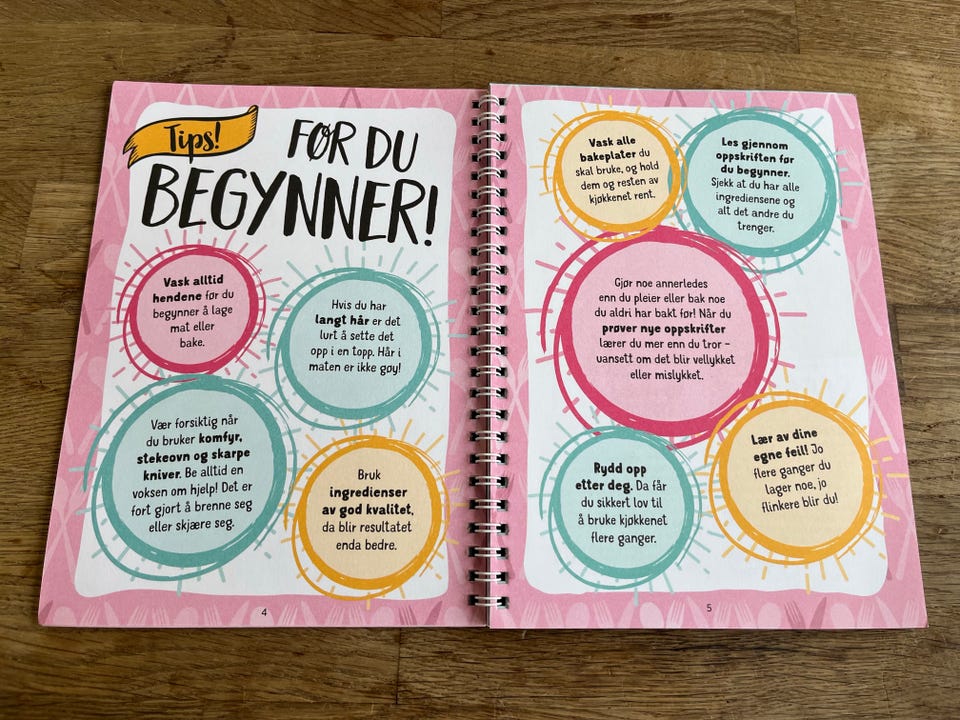 Tips!
FØR DU
BEGYNNER!
Vask alltid
hendene før du
begynner å lage
mat eller
bake.
Hvis du har
langt hår er det
lurt å sette det
opp i en topp. Hår i
maten er ikke gøy!
Vær forsiktig når
du bruker komfyr,
stekeovn og skarpe
kniver. Be alltid en
voksen om hjelp! Det er
fort gjort å brenne seg
eller skjære seg.
Bruk
ingredienser
av god kvalitet,
da blir resultatet
enda bedre.
4
Vask alle
bakeplater du
skal bruke, og hold
dem og resten av
kjøkkenet rent.
Les gjennom
oppskriften før
du begynner.
Sjekk at du har alle
ingrediensene og
alt det andre du
trenger.
Gjør noe annerledes
enn du pleier eller bak noe
du aldri har bakt før! Når du
prøver nye oppskrifter
lærer du mer enn du tror –
uansett om det blir vellykket
eller mislykket.
Rydd opp
etter deg. Da får
du sikkert lov til
å bruke kjøkkenet
flere ganger.
Lær av dine
egne feil! Jo
flere ganger du
lager noe, jo
flinkere blir du!
5